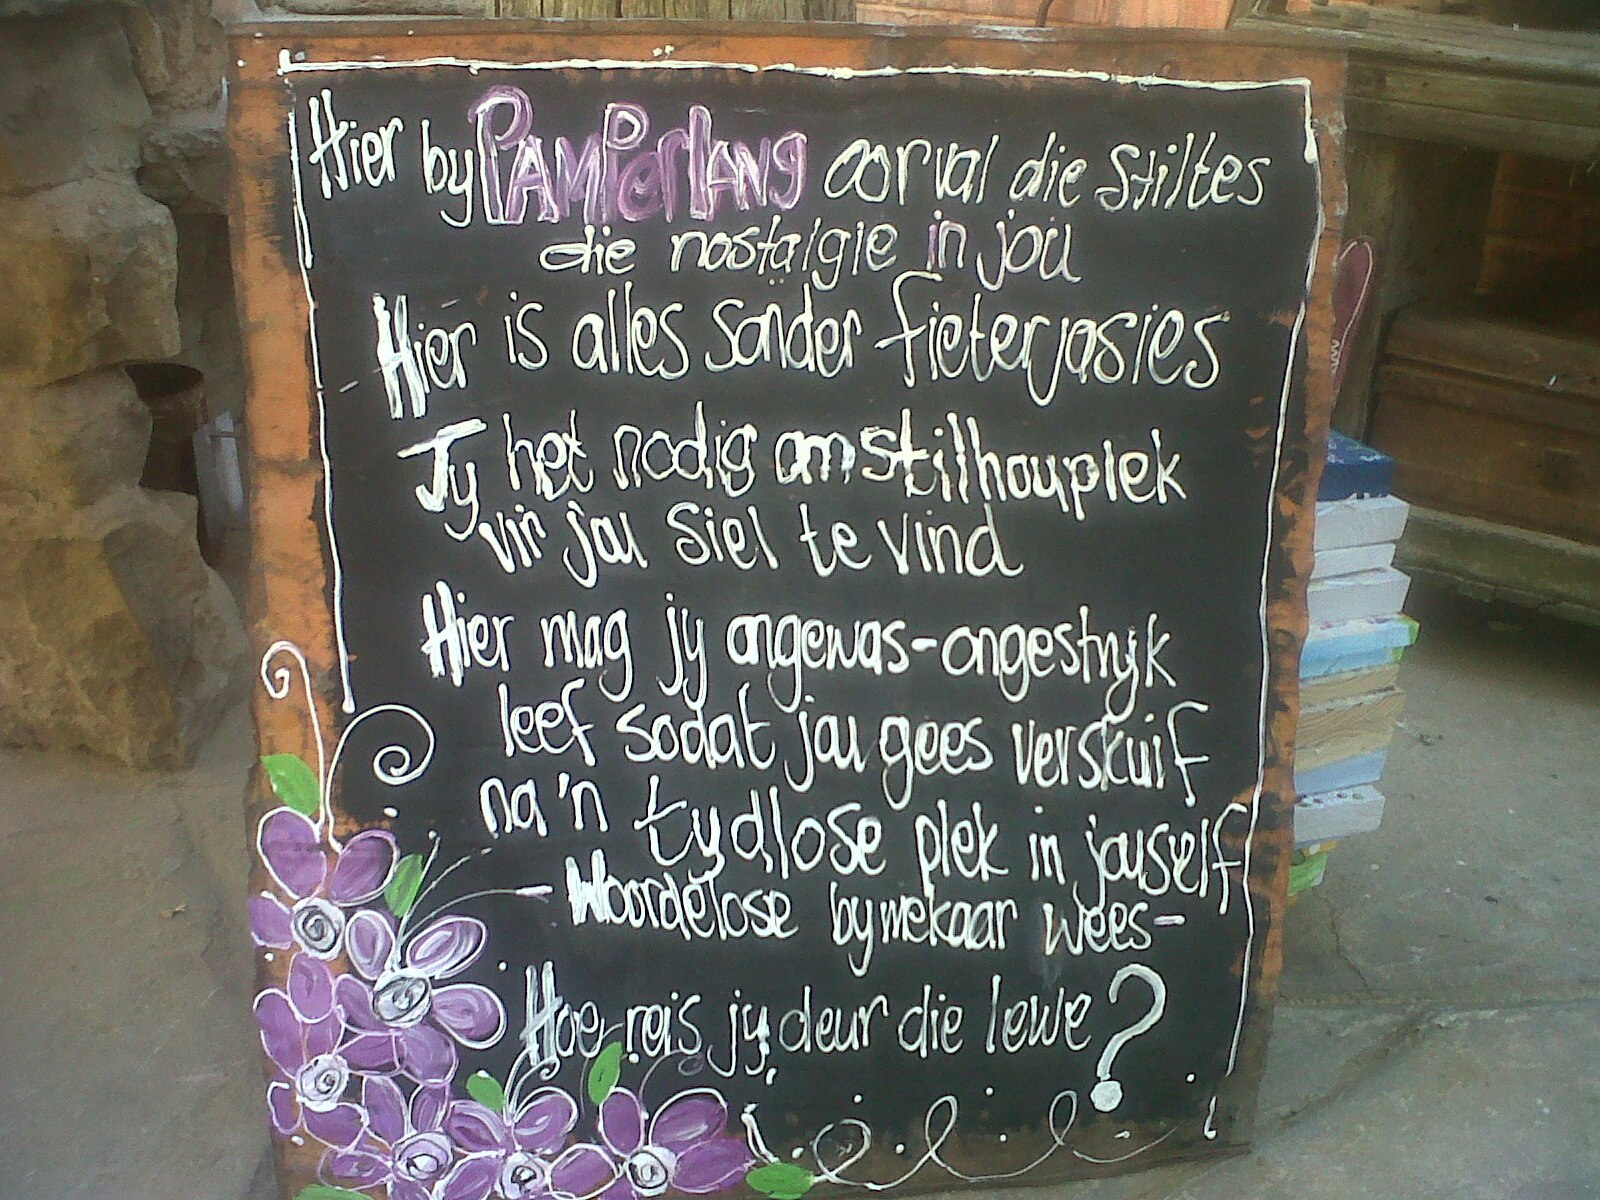 Hier by PAMPerLANg oorval die stiltes
die nostalgie in jou
Hier is alles sonder fieterjasies
Jy het nodig om stilhouplek
vir jou siel te vind
Hier mag jy ongewas-ongestryk
leef sodat jou gees verskuif
na 'n tydlose plek in jouself
- Woordelose bymekaar wees -
Hoe reis jy deur die lewe?